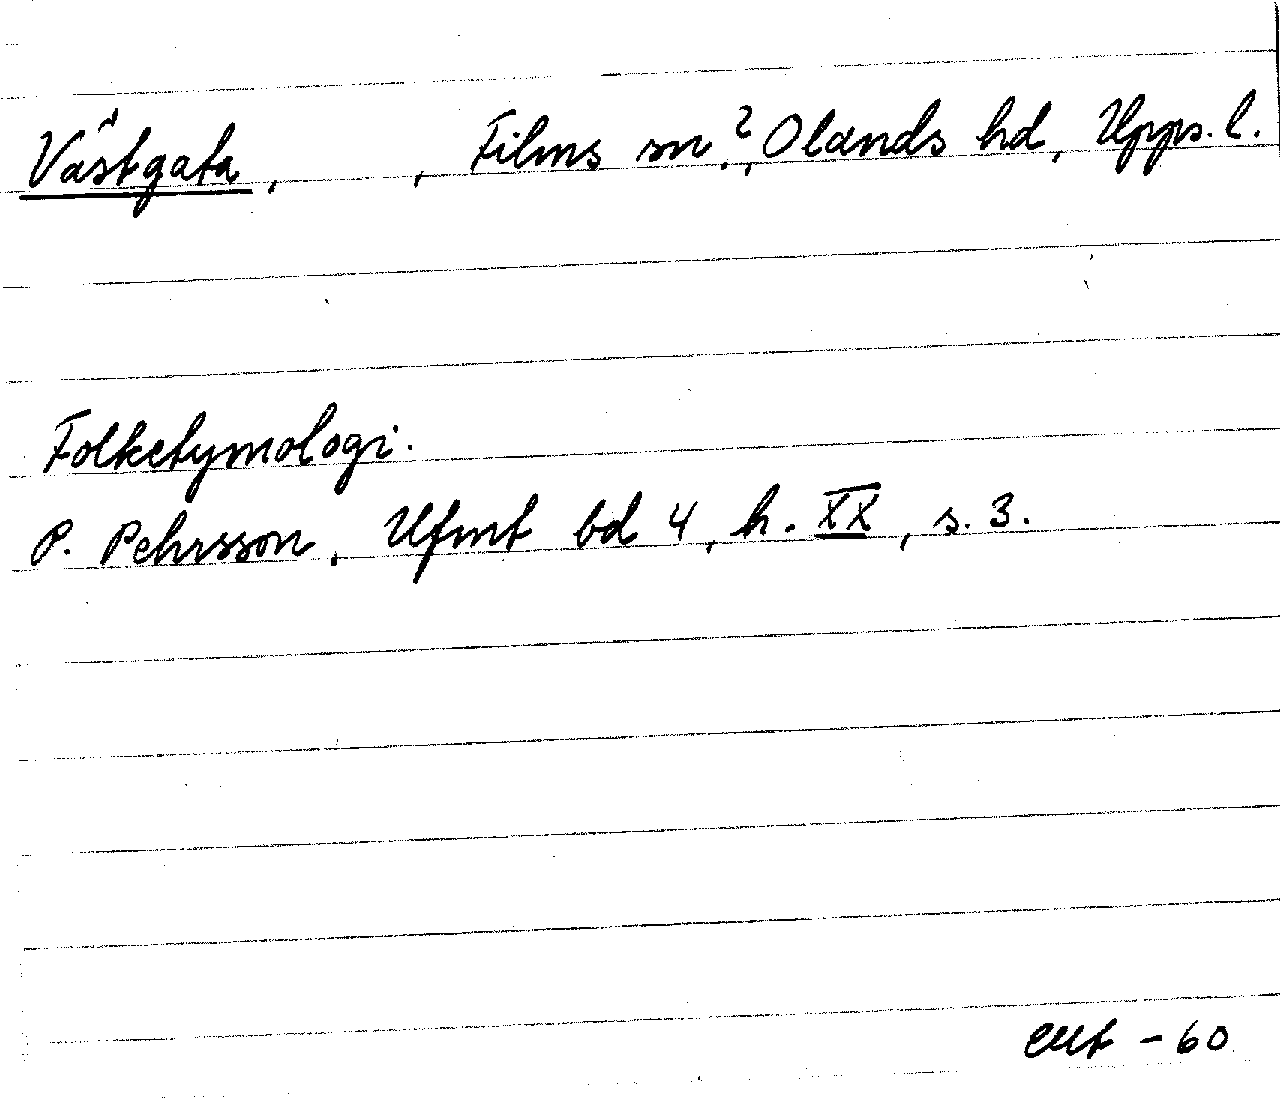 Västgata, , Films sn?, Olands hd, Upps. l.
Folketymologi.
P. Pehrsson, Ufmt bd 4, h. XX, s. 3.
-60